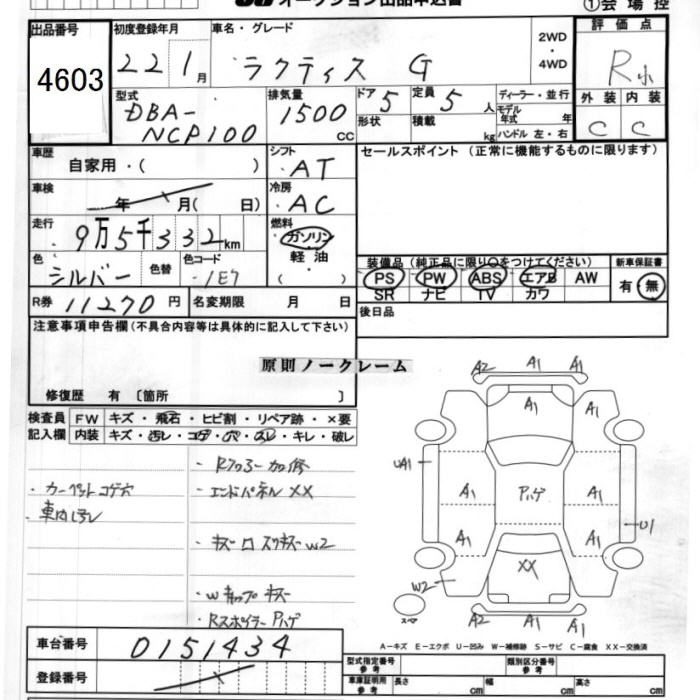 オークション出品申込書
①会場控
出品番号
4603
初度登録年月
22 1月
車名・グレード
ラクティス G
2WD
・
4WD
評価点
R小
外装 内装
C C
型式
DBA-
NCP100
排気量
1500
CC
ドア 5
形状
定員 5 人
積載 kg
ディーラー・並行
モデル
年式 年
ハンドル 左・右
車歴
自家用・( )
シフト
AT
セールスポイント (正常に機能するものに限ります)
車検
年 月( 日)
冷房
AC
走行
9万5千332km
燃料
ガソリン
軽油
・
( )
色
シルバー
色替
色コード
1E7
装備品 (純正品に限り○をつけてください)
PS PW ABS エアB AW
SR ナビ TV カワ
新車保証書
有・無
R券 11270 円
名変期限 月 日
後日品
注意事項申告欄 (不具合内容等は具体的に記入して下さい)
原則ノークレーム
修復歴 有 [箇所 ]
検査員
記入欄
FW キズ・飛石・ヒビ割・リペア跡・×要
内装 キズ・汚レ・コゲ・穴・スレ・キレ・破レ
・カーペットコゲ穴
・車内汚レ
・Rフロアー加修
・エンドパネルXX
・キズ ロ スリキズ W2
・Wキャップ キズ
・Rスポイラー Pハゲ
A2 A1 A1
A1
UA1
A1 Pハゲ A1
A1 A1
U1
XX
W2
スペア
A2 A1 A1
車台番号 0151434
A-キズ E-エクボ U-凹み W-補修跡 S-サビ C-腐食 XX-交換済
登録番号
型式指定番号
参考
類別区分番号
参考
車庫証明用
参考
長さ cm
幅 cm
高さ cm